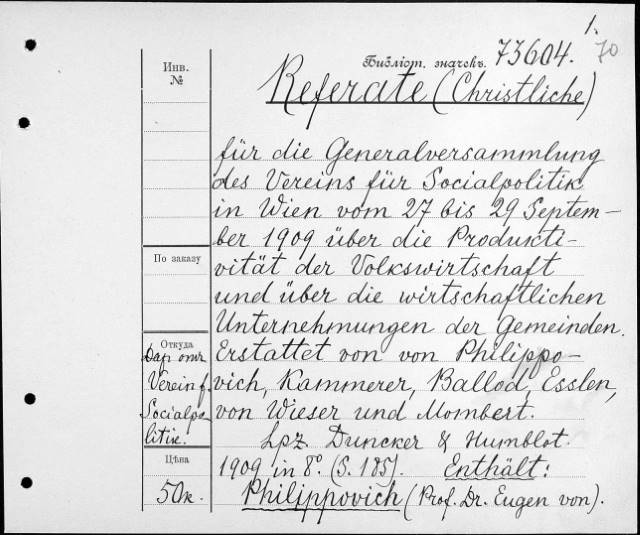 1.
70
Инв.
№
Библіот. значекъ. 73604.
Referate (Christliche)
für die Generalversammlung
des Vereins für Socialpolitik
in Wien vom 27 bis 29 Septem-
ber 1909 über die Produkti-
vität der Volkswirtschaft
und über die wirtschaftlichen
Unternehmungen der Gemeinden.
Erstattet von von Philippo-
vich, Kammerer, Ballod, Esslen,
von Wieser und Mombert.
Lpz. Duncker & Humblot.
1909 in 8º. (S. 185). Enthält:
Philippovich (Prof. Dr. Eugen von).
По заказу
Откуда
Дар отъ
Verein f.
Socialpo
litik.
Цѣна
50к.